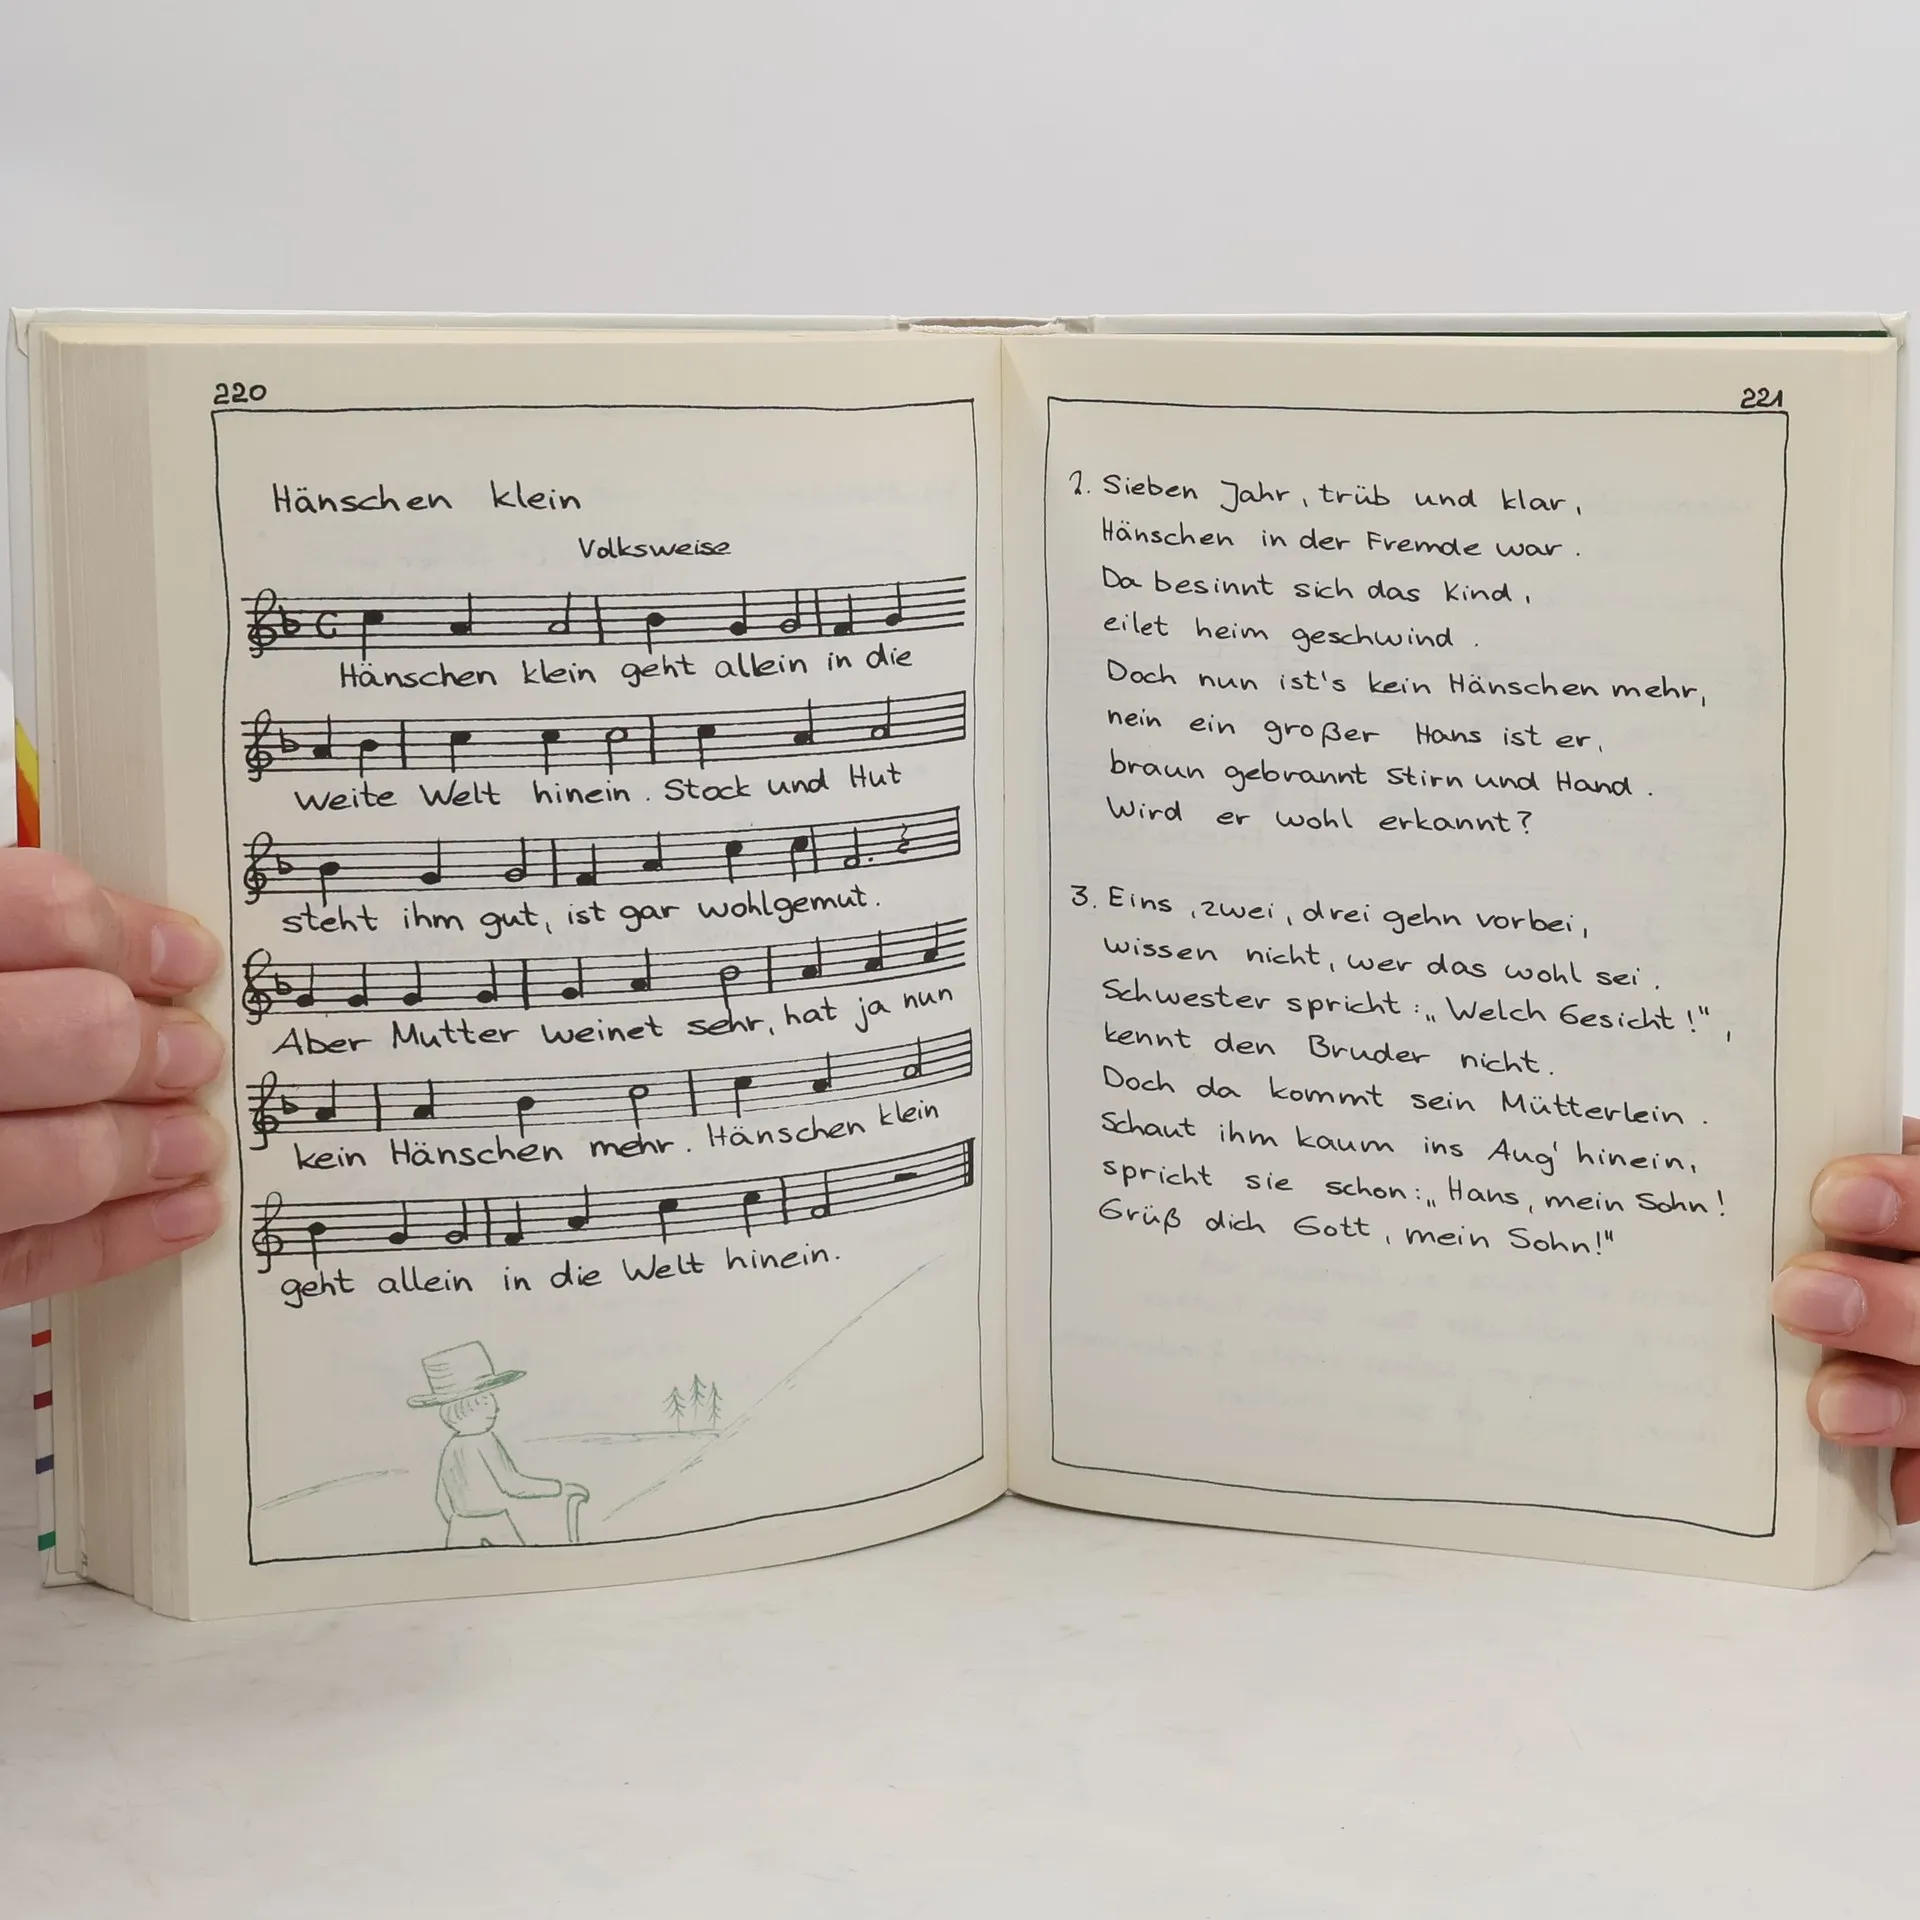 220
Hänschen klein
Volksweise
Hänschen klein geht allein in die
weite Welt hinein. Stock und Hut
steht ihm gut, ist gar wohlgemut.
Aber Mutter weinet sehr, hat ja nun
kein Hänschen mehr. Hänschen klein
geht allein in die Welt hinein.
221
2. Sieben Jahr, trüb und klar,
Hänschen in der Fremde war.
Da besinnt sich das Kind,
eilet heim geschwind.
Doch nun ist's kein Hänschen mehr,
nein ein großer Hans ist er,
braun gebrannt Stirn und Hand.
Wird er wohl erkannt?
3. Eins, zwei, drei gehn vorbei,
wissen nicht, wer das wohl sei.
Schwester spricht: „Welch Gesicht!",
kennt den Bruder nicht.
Doch da kommt sein Mütterlein.
Schaut ihm kaum ins Aug' hinein,
spricht sie schon: „Hans, mein Sohn!
Grüß dich Gott, mein Sohn!"